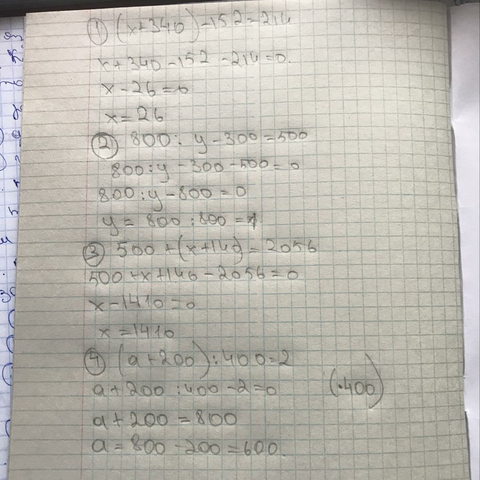 ① (x+340)-152=214
x+340-152-214=0
x-26=0
x=26
② 800: y-300=500
800:y-300-500=0
800:y-800=0
y= 800:800=1
③ 500+(x+146)=2056
500+x+146-2056=0
x-1410=0
x=1410
④ (a+200):400=2
a+200:400-2=0 (·400)
a+200=800
a=800-200=600.